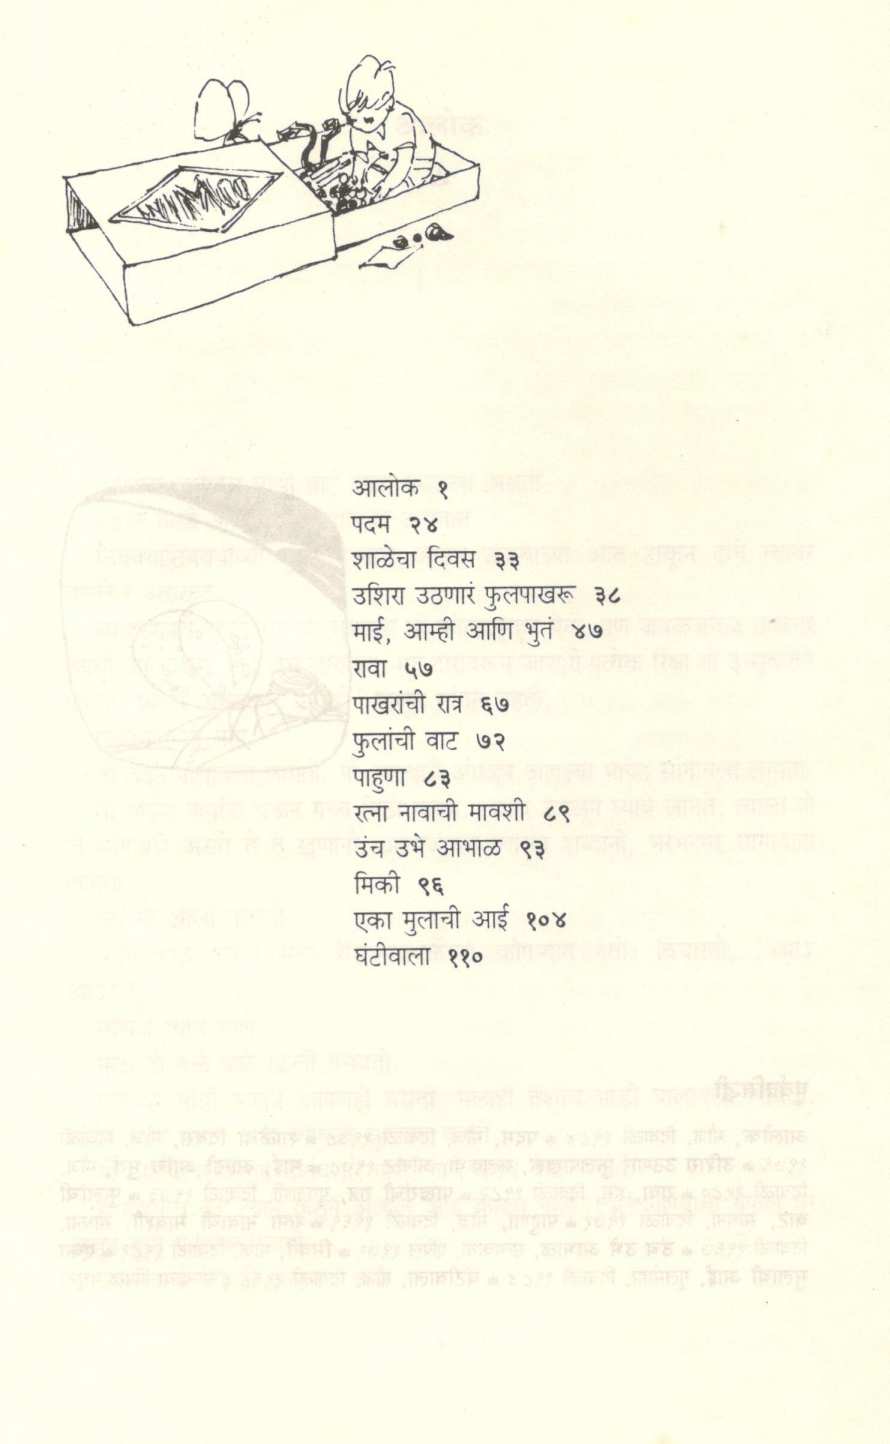 आलोक १
पदम २४
शाळेचा दिवस ३३
उशिरा उठणारं फुलपाखरू ३८
माई, आम्ही आणि भुतं ४७
रावा ५७
पाखरांची रात्र ६७
फुलांची वाट ७२
पाहुणा ८३
रत्ना नावाची मावशी ८९
उंच उभे आभाळ ९३
मिकी ९६
एका मुलाची आई १०४
घंटीवाला ११०